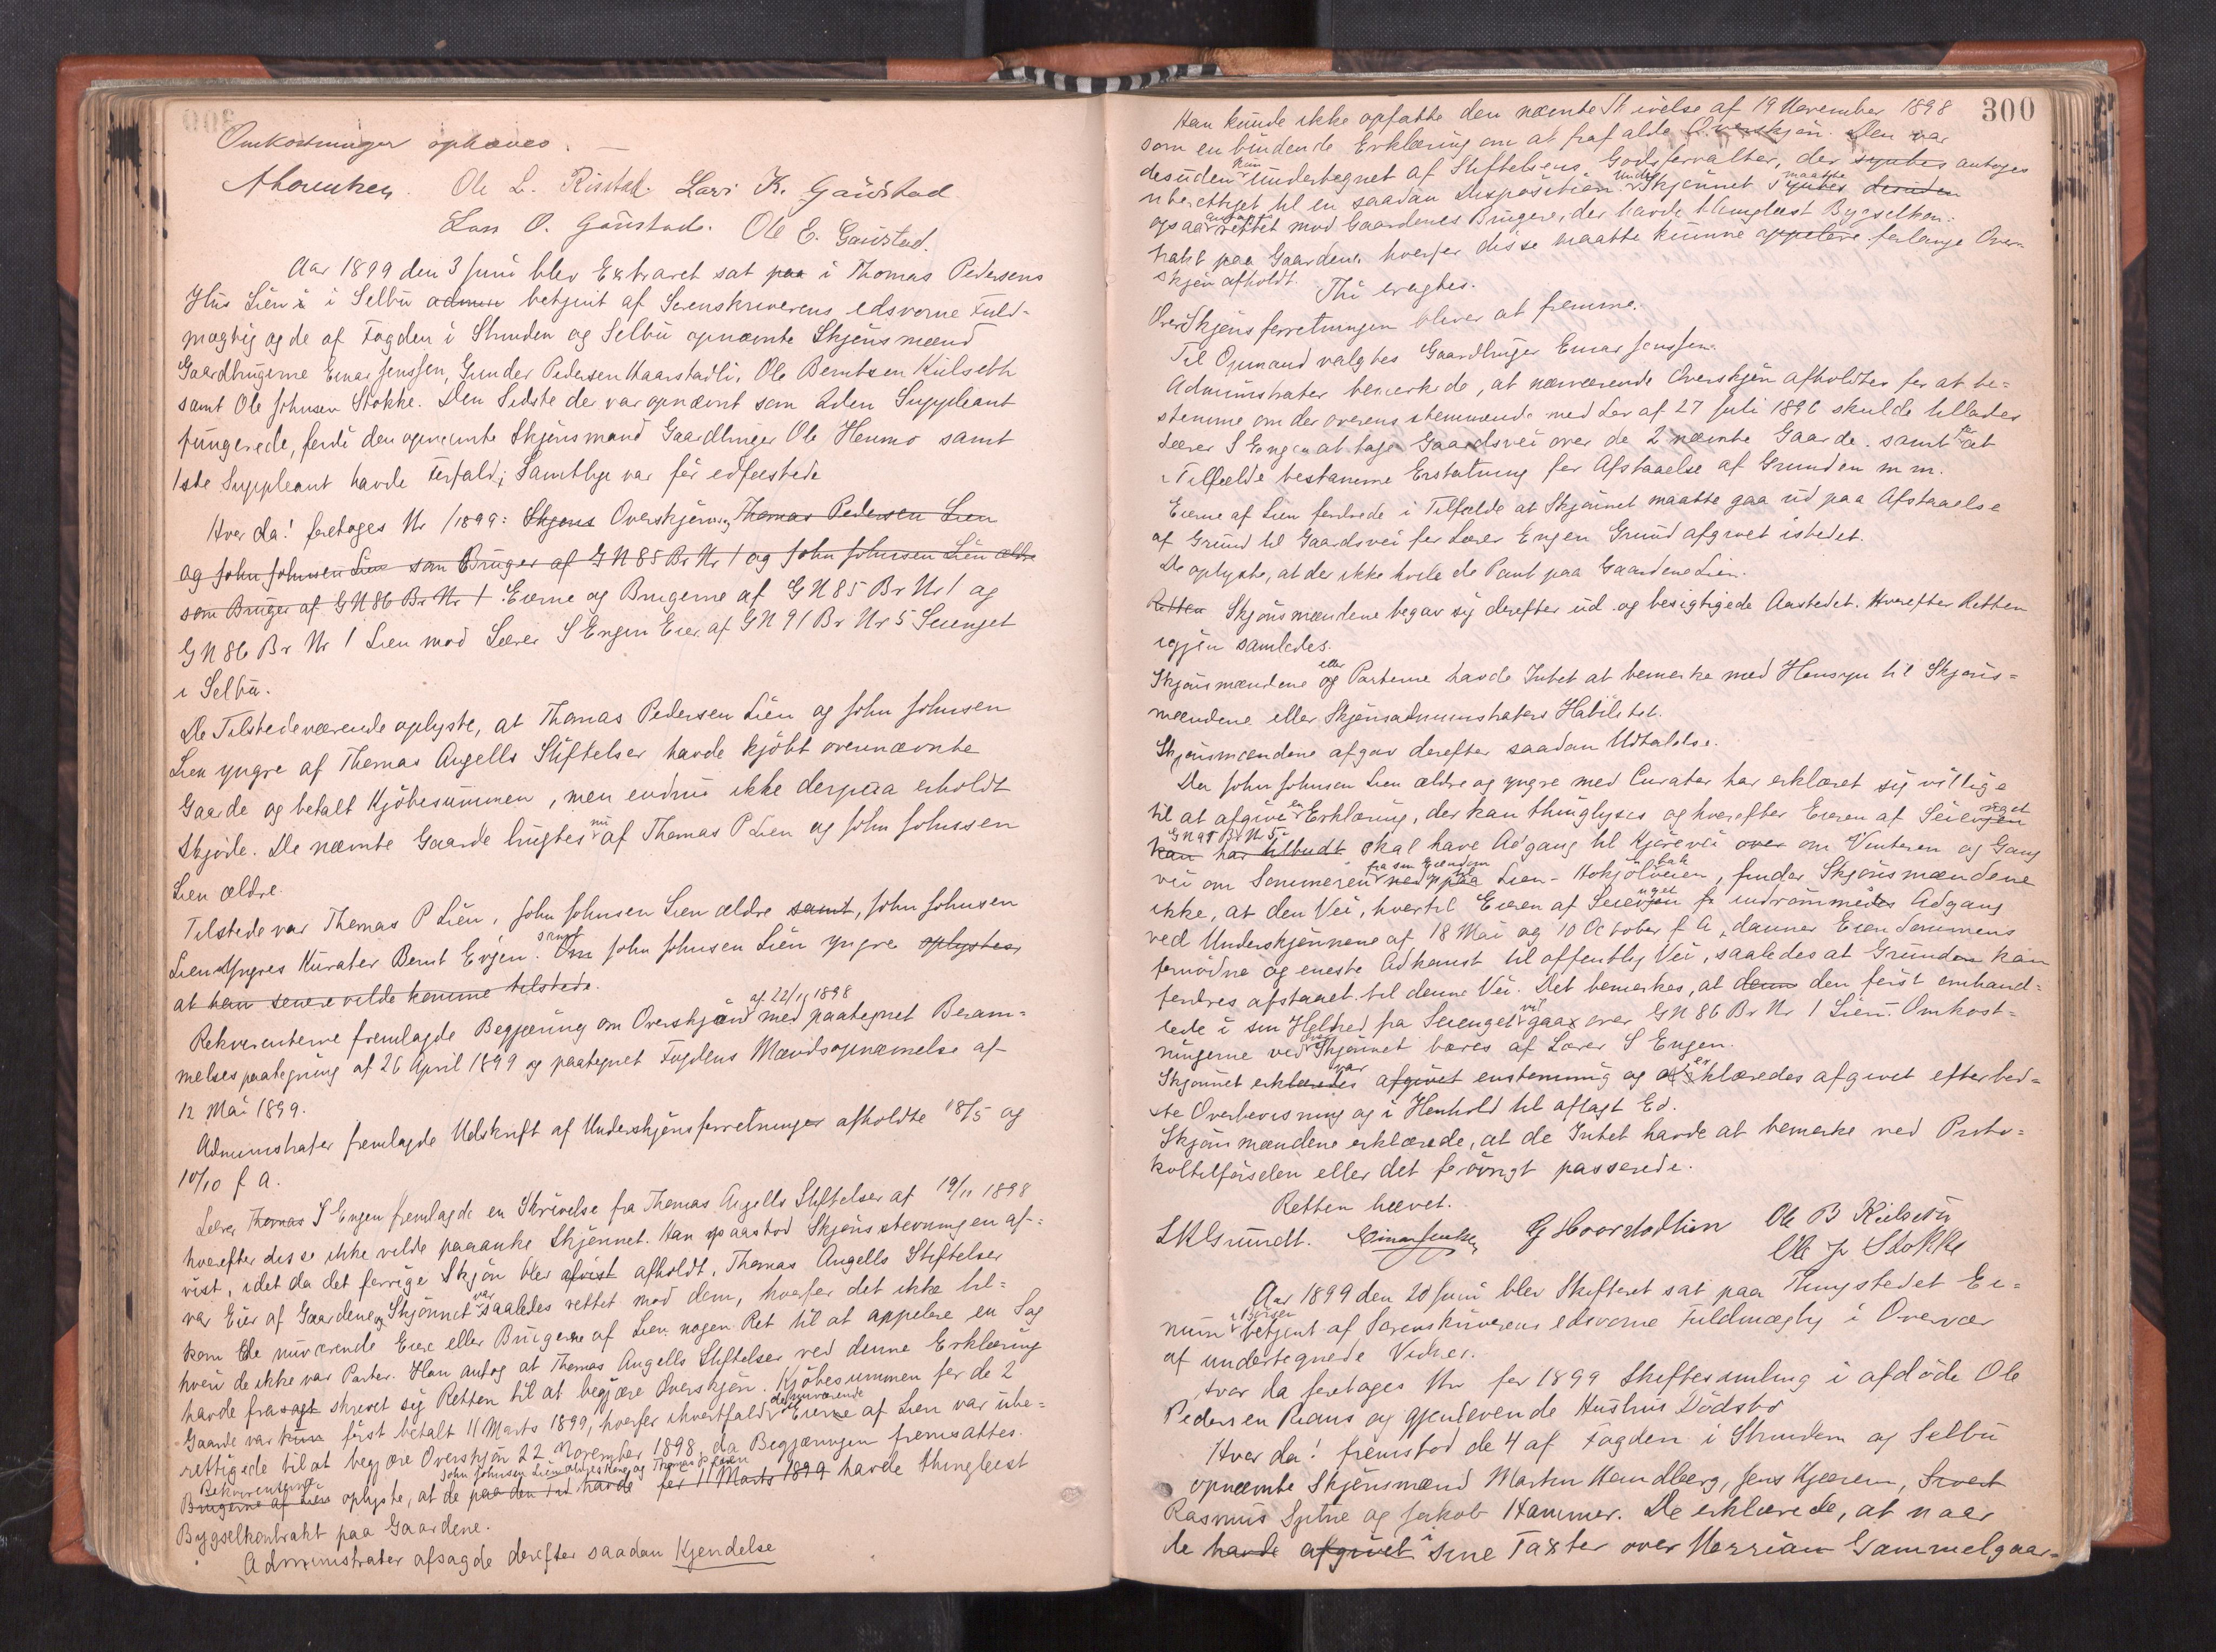 Omkostninger ophæves. —
Ole L. Rustad. Lars K. Gaustad
Lars O. Gaustad. Ole E. Gaustad.
Aar 1899 den 3 Juni blev Extraret sat paa i Thomas Pedersens
Hus Lien i Selbu betjent af Sorenskriverens edsvorne Fuld-
mægtig og de af Fogden i Strinden og Selbu opnævnte Skjønsmænd
Gaardbrugerne Einar Jenssen, Gunder Pedersen Haarstadli, Ole Berntsen Kulseth
samt Ole Johnsen Stokke. Den Sidste der var opnævnt som 2den Suppleant
fungerede, fordi den opnævnte Skjønsmand Gaardbruger Ole Henmo samt
1ste Suppleant havde Forfald; Samtlige var før edfæstede
Hvor da! foretoges Nr /1899: Skjøns Overskjøn Thomas Pedersen Lien
og John Johnsen Lien som Bruger af G N 85 Br Nr 1 og John Johnsen Lien ældre
som Bruger af G N 86 Br Nr 1 Eierne og Brugerne af G N 85 Br Nr 1 og
G N 86 Br Nr 1 Lien mod Lærer S Engen Eier af G N 91 Br Nr 5 Seienget
i Selbu.
De Tilstedeværende oplyste, at Thomas Pedersen Lien og John Johnsen
Lien yngre af Thomas Angells Stiftelser havde kjøbt ovennævnte
Gaarde og betalt Kjøbesummen, men endnu ikke derpaa erholdt
Skjøde. De nævnte Gaarde brugtes nu af Thomas P Lien og John Johnsen
Lien ældre.
Tilstede var Thomas P Lien, John Johnsen Lien ældre samt, John Johnsen
Lien Yngres Kurator Bernt Evjen. samt Om John Johnsen Lien yngre oplystes
at han senere vilde komme tilstede.
Rekvirenterne fremlagde Begjæring om Overskjøn af 22/11 1898 med paategnet Beram-
melsespaategning af 26 April 1899 og paategnet Fogdens Mandsopnævnelse af
12 Mai 1899.
Administrator fremlagde Udskrift af Underskjønsforretninger afholdte 18/5 og
10/10 f. A.
Lærer Thomas S Engen fremlagde en Skrivelse fra Thomas Angells Stiftelser af 19/11 1898
hvorefter disse ikke vilde paaanke Skjønnet. Han paastod Skjønsstevningen af-
vist, idet da det forrige Skjøn blev afvist afholdt, Thomas Angells Stiftelser
var Eier af Gaardene og Skjønnet var saaledes rettet mod dem, hvorfor det ikke til-
kom de nuværende Eiere eller Brugerne af Lien nogen Ret til at appelere en Sag
hvori de ikke var Parter. Han antog at Thomas Angells Stiftelser ved denne Erklæring
havde frasagt skrevet sig Retten til at begjære Overskjøn. Kjøbesummen for de 2
Gaarde var kun først betalt 11 Marts 1899, hvorfor ihvertfald de nuværende Eierne af Lien var ube-
rettigede til at begjære Overskjøn 22 November 1898, da Begjæringen fremsattes.
Rekvirenterne John Johnsen Lien ældres Kone og Thomas P Lien
Brugerne af Lien oplyste, at de paa den Tid havde før 11 Marts 1899 havde thinglæst
Bygselkontrakt paa Gaardene.
Administrator afsagde derefter saadan Kjendelse
300
Han kunde ikke opfatte den nævnte Skrivelse af 19 November 1898
som en bindende Erklæring om at frafalde Overskjøn. Den var
desuden kun undertegnet af Stiftelsens Godsforvalter, der syntes antoges
uberettiget til en saadan Disposition. Underskjønnet maatte syntes desuden
ogsaa antages rettet mod Gaardenes Brugere, der havde thinglæst Bygselkon-
trakt paa Gaardene hvorfor disse maatte kunne appelere forlange Over-
skjøn afholdt.
Thi eragtes.
Overskjønsforretningen bliver at fremme.
Til Opmand valgtes Gaardbruger Einar Jenssen.
Administrator bemærkede, at nærværende Overskjøn afholdtes for at be-
stemme om der overensstemmende med Lov af 27 Juli 1896 skulde tillades
Lærer S Engen at tage Gaardsvei over de 2 nævnte Gaarde samt for at
i Tilfælde bestemme Erstatning for Afstaaelse af Grunden m m.
Eierne af Lien fordrede i Tilfælde at Skjønnet maatte gaa ud paa Afstaaelse
af Grund til Gaardsvei for Lærer Engen Grund afgivet istedet.
De oplyste, at der ikke hvilede Pant paa Gaardene Lien.
Retten Skjønsmændene begav sig derefter ud og besigtigede Aastedet. Hvorefter Retten
igjen samledes.
Skjønsmændene eller og Parterne havde Intet at bemerke med Hensyn til Skjøns-
mændene eller Skjønsadministrators Habilitet.
Skjønsmændene afgav derefter saadan Udtalelse.
Da John Johnsen Lien ældre og yngre med Curator har erklæret sig villige
til at afgive en Erklæring, der kan thinglyses og hvorefter Eieren af Seienget
G N 91 Br Nr 5
kan har tilbudt skal have Adgang til Kjørevei over om Vinteren og Gang
vei om Sommeren fra sin Eiendom ned paa til Lien-Hokjølveien, finder Skjønsmændene
ikke, at den Vei, hvortil Eieren af Seienget indrømmedes Adgang
ved Underskjønnene af 18 Mai og 10 October f A, danner Eiendommens
fornødne og eneste Adkomst til offentlig Vei, saaledes at Grunden kan
fordres afstaaet til denne Vei. Det bemerkes, at denne den først omhand-
lede i sin Helhed fra Seienget vil gaa over G N 86 Br Nr 1 Lien. Omkost-
ningerne ved Overskjønnet bæres af Lærer S Engen.
Skjønnet erklæredes var afgivet enstemmig og erklæredes afgivet efter bed-
ste Overbevisning og i Henhold til aflagt Ed.
Skjønsmændene erklærede, at de Intet havde at bemerke ved Proto-
koltilførselen eller det forøvrigt passerede.
Retten hævet.
Einar Jenssen G Hoorstadlien Ole B Kulseth
Ole J Stokke
Aar 1899 den 20 Juni blev Skifteret sat paa Thingstedet
betjent af Sorenskriverens edsvorne Fuldmægtig i Overvær
af undertegnede Vidner.
Hvor da foretoges Nr for 1899 Skiftesamling i afdøde Ole
Pedersen Renaas og gjenlevende Hustrus Dødsbo
Hvor da! fremstod de 4 af Fogden i Strinden og Selbu
opnævnte Skjønsmænd Martin Handberg, Jens Kjæren, Sivert
Rasmus Sytne og Jakob Hammer. De erklærede, at naar
de havde afgivet i sine Taxter over Gammelgaar-